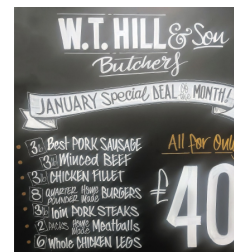 W.T. HILL & Son
Butchers
JANUARY Special DEAL of the MONTH!
3lb Best PORK SAUSAGE
3lb Minced BEEF
3lb CHICKEN FILLET
8 QUARTER POUNDER Home Made BURGERS
3lb loin PORK STEAKS
2 PACKS Home Made Meatballs
6 Whole CHICKEN LEGS
All for Only
£40